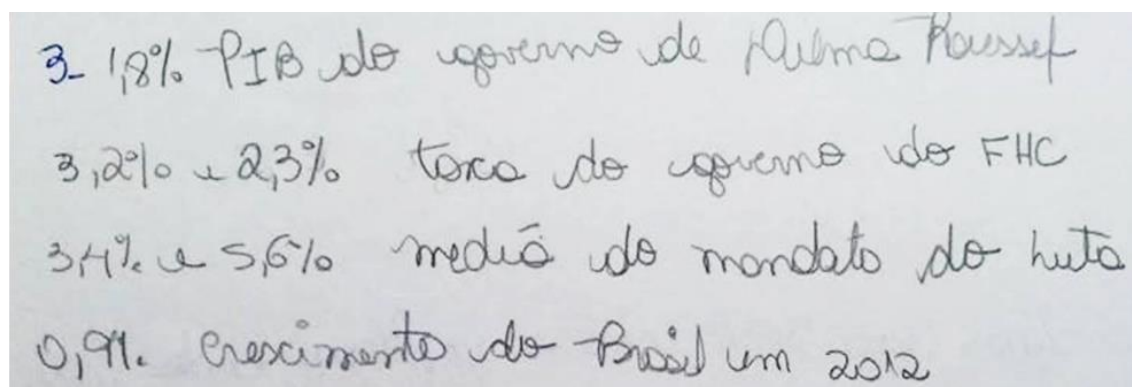 3- 1,8% PIB do governo de Dilma Roussef
3,2% e 2,3% taxa do governo do FHC
3,4% e 5,6% mediã do mandato do Lula
0,9%. Crescimento do Brasil em 2012